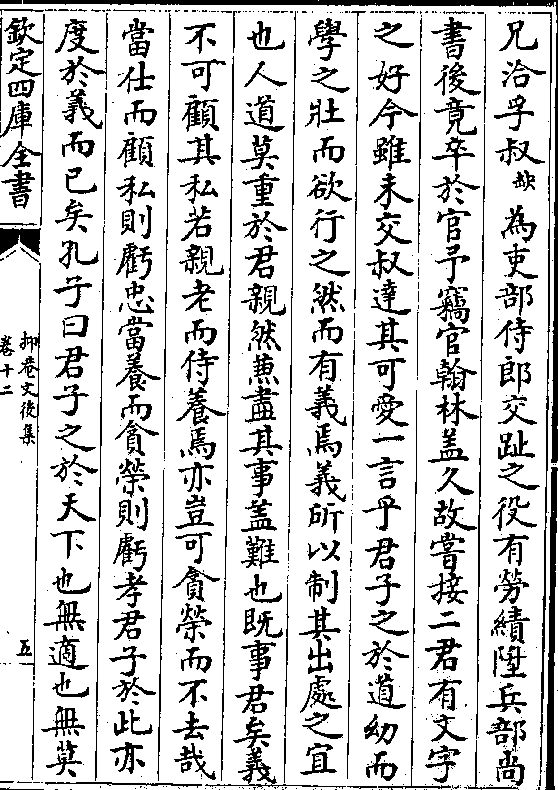 兄洽孚叔缺為吏部侍郎交趾之役有勞績陞兵部尚
書後竟卒於官予竊官翰林盖久故嘗接二君有文字
之好今雖未交叔達其可愛一言乎君子之於道幼而
學之壯而欲行之然而有義焉義所以制其出處之宜
也人道莫重於君親然兼盡其事盖難也既事君矣義
不可顧其私若親老而侍養焉亦豈可貪榮而不去哉
當仕而顧私則虧忠當養而貪榮則虧孝君子於此亦
度於義而已矣孔子曰君子之於天下也無適也無莫
欽定四庫全書
抑菴文後集
卷十二
五